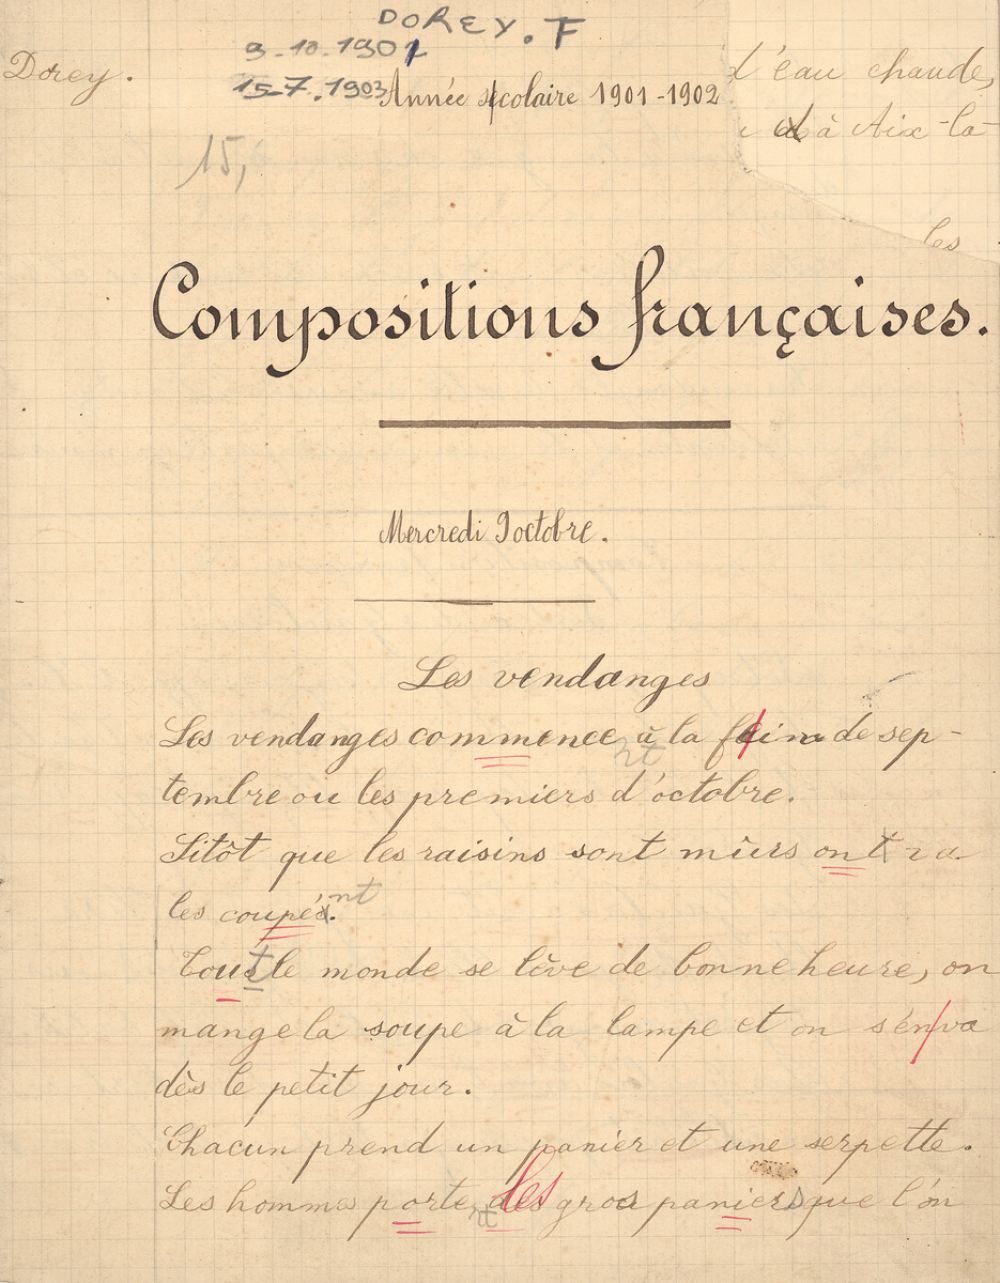 DOREY. F
9-10-1901
Dorey.
15-7.1903
Année scolaire 1901-1902
l'eau chaude,
à Aix-la-
les
15,
Compositions françaises.
Mercredi 9 octobre.
Les vendanges
Les vendanges commence à la fin de sep-
nt
tembre ou les premiers d'octobre.
Sitôt que les raisins sont mûrs ont va
les coupés.
nt
Tout le monde se lève de bonne heure, on
mange la soupe à la lampe et on s'en va
dès le petit jour.
Chacun prend un panier et une serpette.
Les hommes porte les gros paniers que l'on
nt